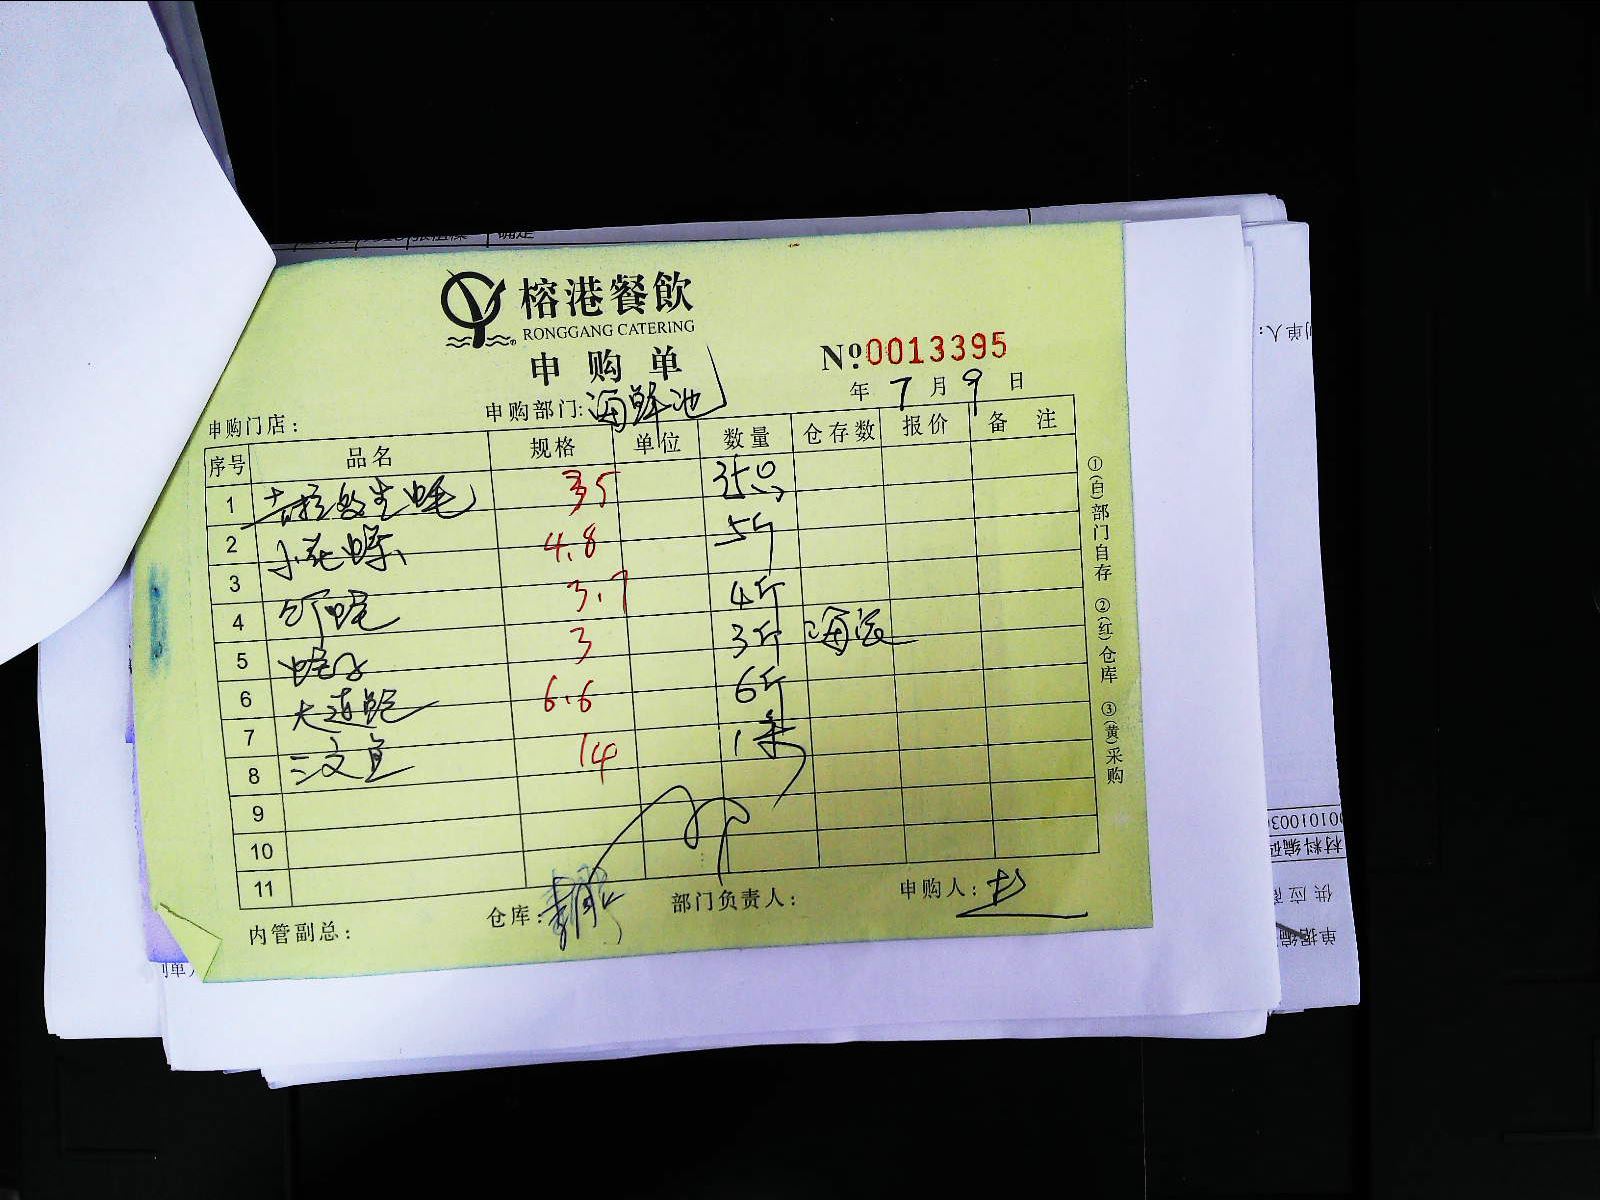 榕港餐飲
RONGGANG CATERING
申购单
№.0013395
年 7 月 9 日
申购门店: 申购部门: 海鲜池
序号 品名 规格 单位 数量 仓存数 报价 备注
1 吉拉多生蚝 35 35只
2 小花螺 4.8 5斤
3 3.7 4斤
4 3 3斤
5 蛏子
6 大连鲍 6.6 6斤
7 14 1条
8 三文鱼
9
10
11
内管副总: 仓库: 部门负责人: 申购人:
①(白)部门自存 ②(红)仓库 ③(黄)采购
确定
制单人:
材料编码
供应商
单据编